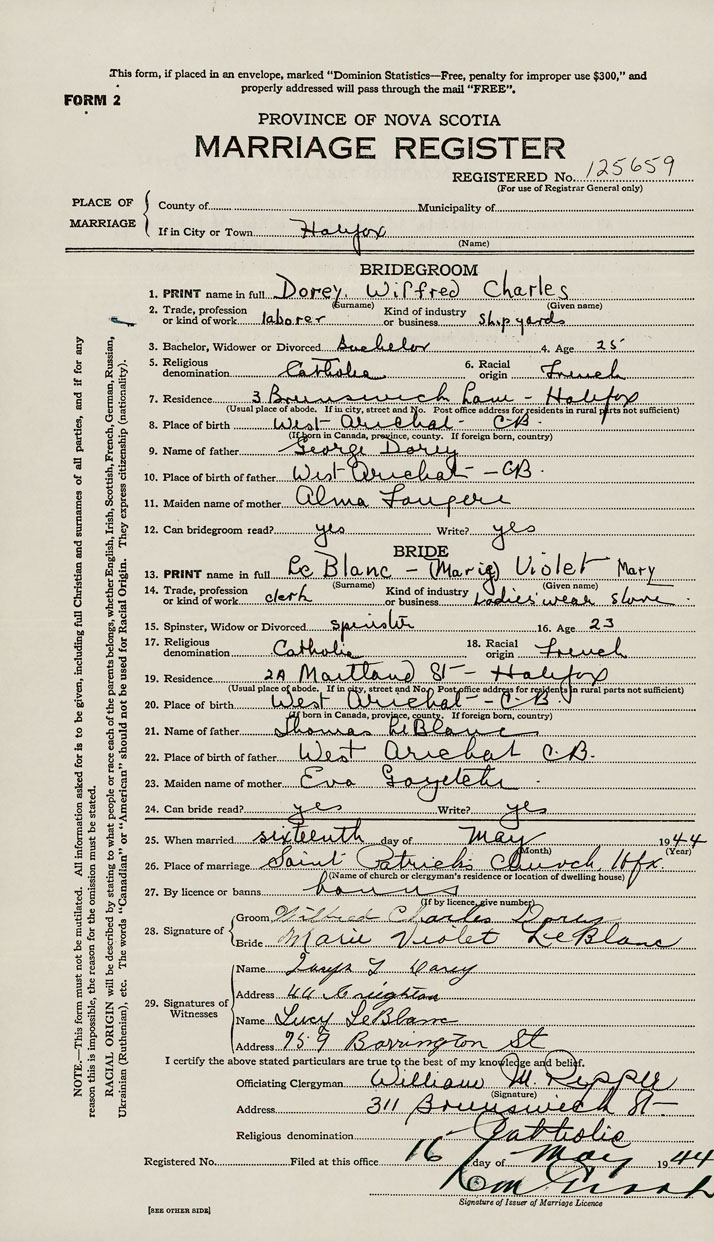 This form, if placed in an envelope, marked "Dominion Statistics—Free, penalty for improper use $300," and
properly addressed will pass through the mail "FREE".
FORM 2
PROVINCE OF NOVA SCOTIA
MARRIAGE REGISTER
REGISTERED No. 125659
(For use of Registrar General only)
PLACE OF MARRIAGE
County of Municipality of
If in City or Town Halifax
(Name)
BRIDEGROOM
1. PRINT name in full Dorey, Wilfred Charles
(Surname) (Given name)
2. Trade, profession or kind of work laborer Kind of industry or business Shipyards
3. Bachelor, Widower or Divorced Bachelor 4. Age 25
5. Religious denomination Catholic 6. Racial origin French
7. Residence 3 Brunswick Lane - Halifax
(Usual place of abode. If in city, street and No. Post office address for residents in rural parts not sufficient)
8. Place of birth West Arichat - CB.
(If born in Canada, province, county. If foreign born, country)
9. Name of father George Dorey
10. Place of birth of father West Arichat - CB.
11. Maiden name of mother Alma Fougere
12. Can bridegroom read? yes Write? yes
BRIDE
13. PRINT name in full Le Blanc - (Marie) Violet Mary
(Surname) (Given name)
14. Trade, profession or kind of work clerk Kind of industry or business Ladies' wear Store
15. Spinster, Widow or Divorced spinster 16. Age 23
17. Religious denomination Catholic 18. Racial origin French
19. Residence 2A Maitland St - Halifax
(Usual place of abode. If in city, street and No. Post office address for residents in rural parts not sufficient)
20. Place of birth West Arichat - C.B.
(If born in Canada, province, county. If foreign born, country)
21. Name of father Thomas LeBlanc
22. Place of birth of father West Arichat C.B.
23. Maiden name of mother Eva
24. Can bride read? yes Write? yes
25. When married sixteenth day of May 1944
(Month) (Year)
26. Place of marriage Saint Patrick's Church, Hfx.
(Name of church or clergyman's residence or location of dwelling house)
27. By licence or banns banns
(If by licence, give number)
28. Signature of
Groom Wilfred Charles Dorey
Bride Marie Violet LeBlanc
29. Signatures of Witnesses
Name
Address 44 Creighton
Name Lucy LeBlanc
Address 759 Barrington St
I certify the above stated particulars are true to the best of my knowledge and belief.
Officiating Clergyman William M.
(Signature)
Address 311 Brunswick St-
Religious denomination Catholic
Registered No. Filed at this office 16 day of May 1944
Signature of Issuer of Marriage Licence
[SEE OTHER SIDE]
NOTE.—This form must not be mutilated. All information asked for is to be given, including full Christian and surnames of all parties, and if for any
reason this is impossible, the reason for the omission must be stated.
RACIAL ORIGIN will be described by stating to what people or race each of the parents belongs, whether English, Irish, Scottish, French, German, Russian,
Ukrainian (Ruthenian), etc. The words "Canadian" or "American" should not be used for Racial Origin. They express citizenship (nationality).